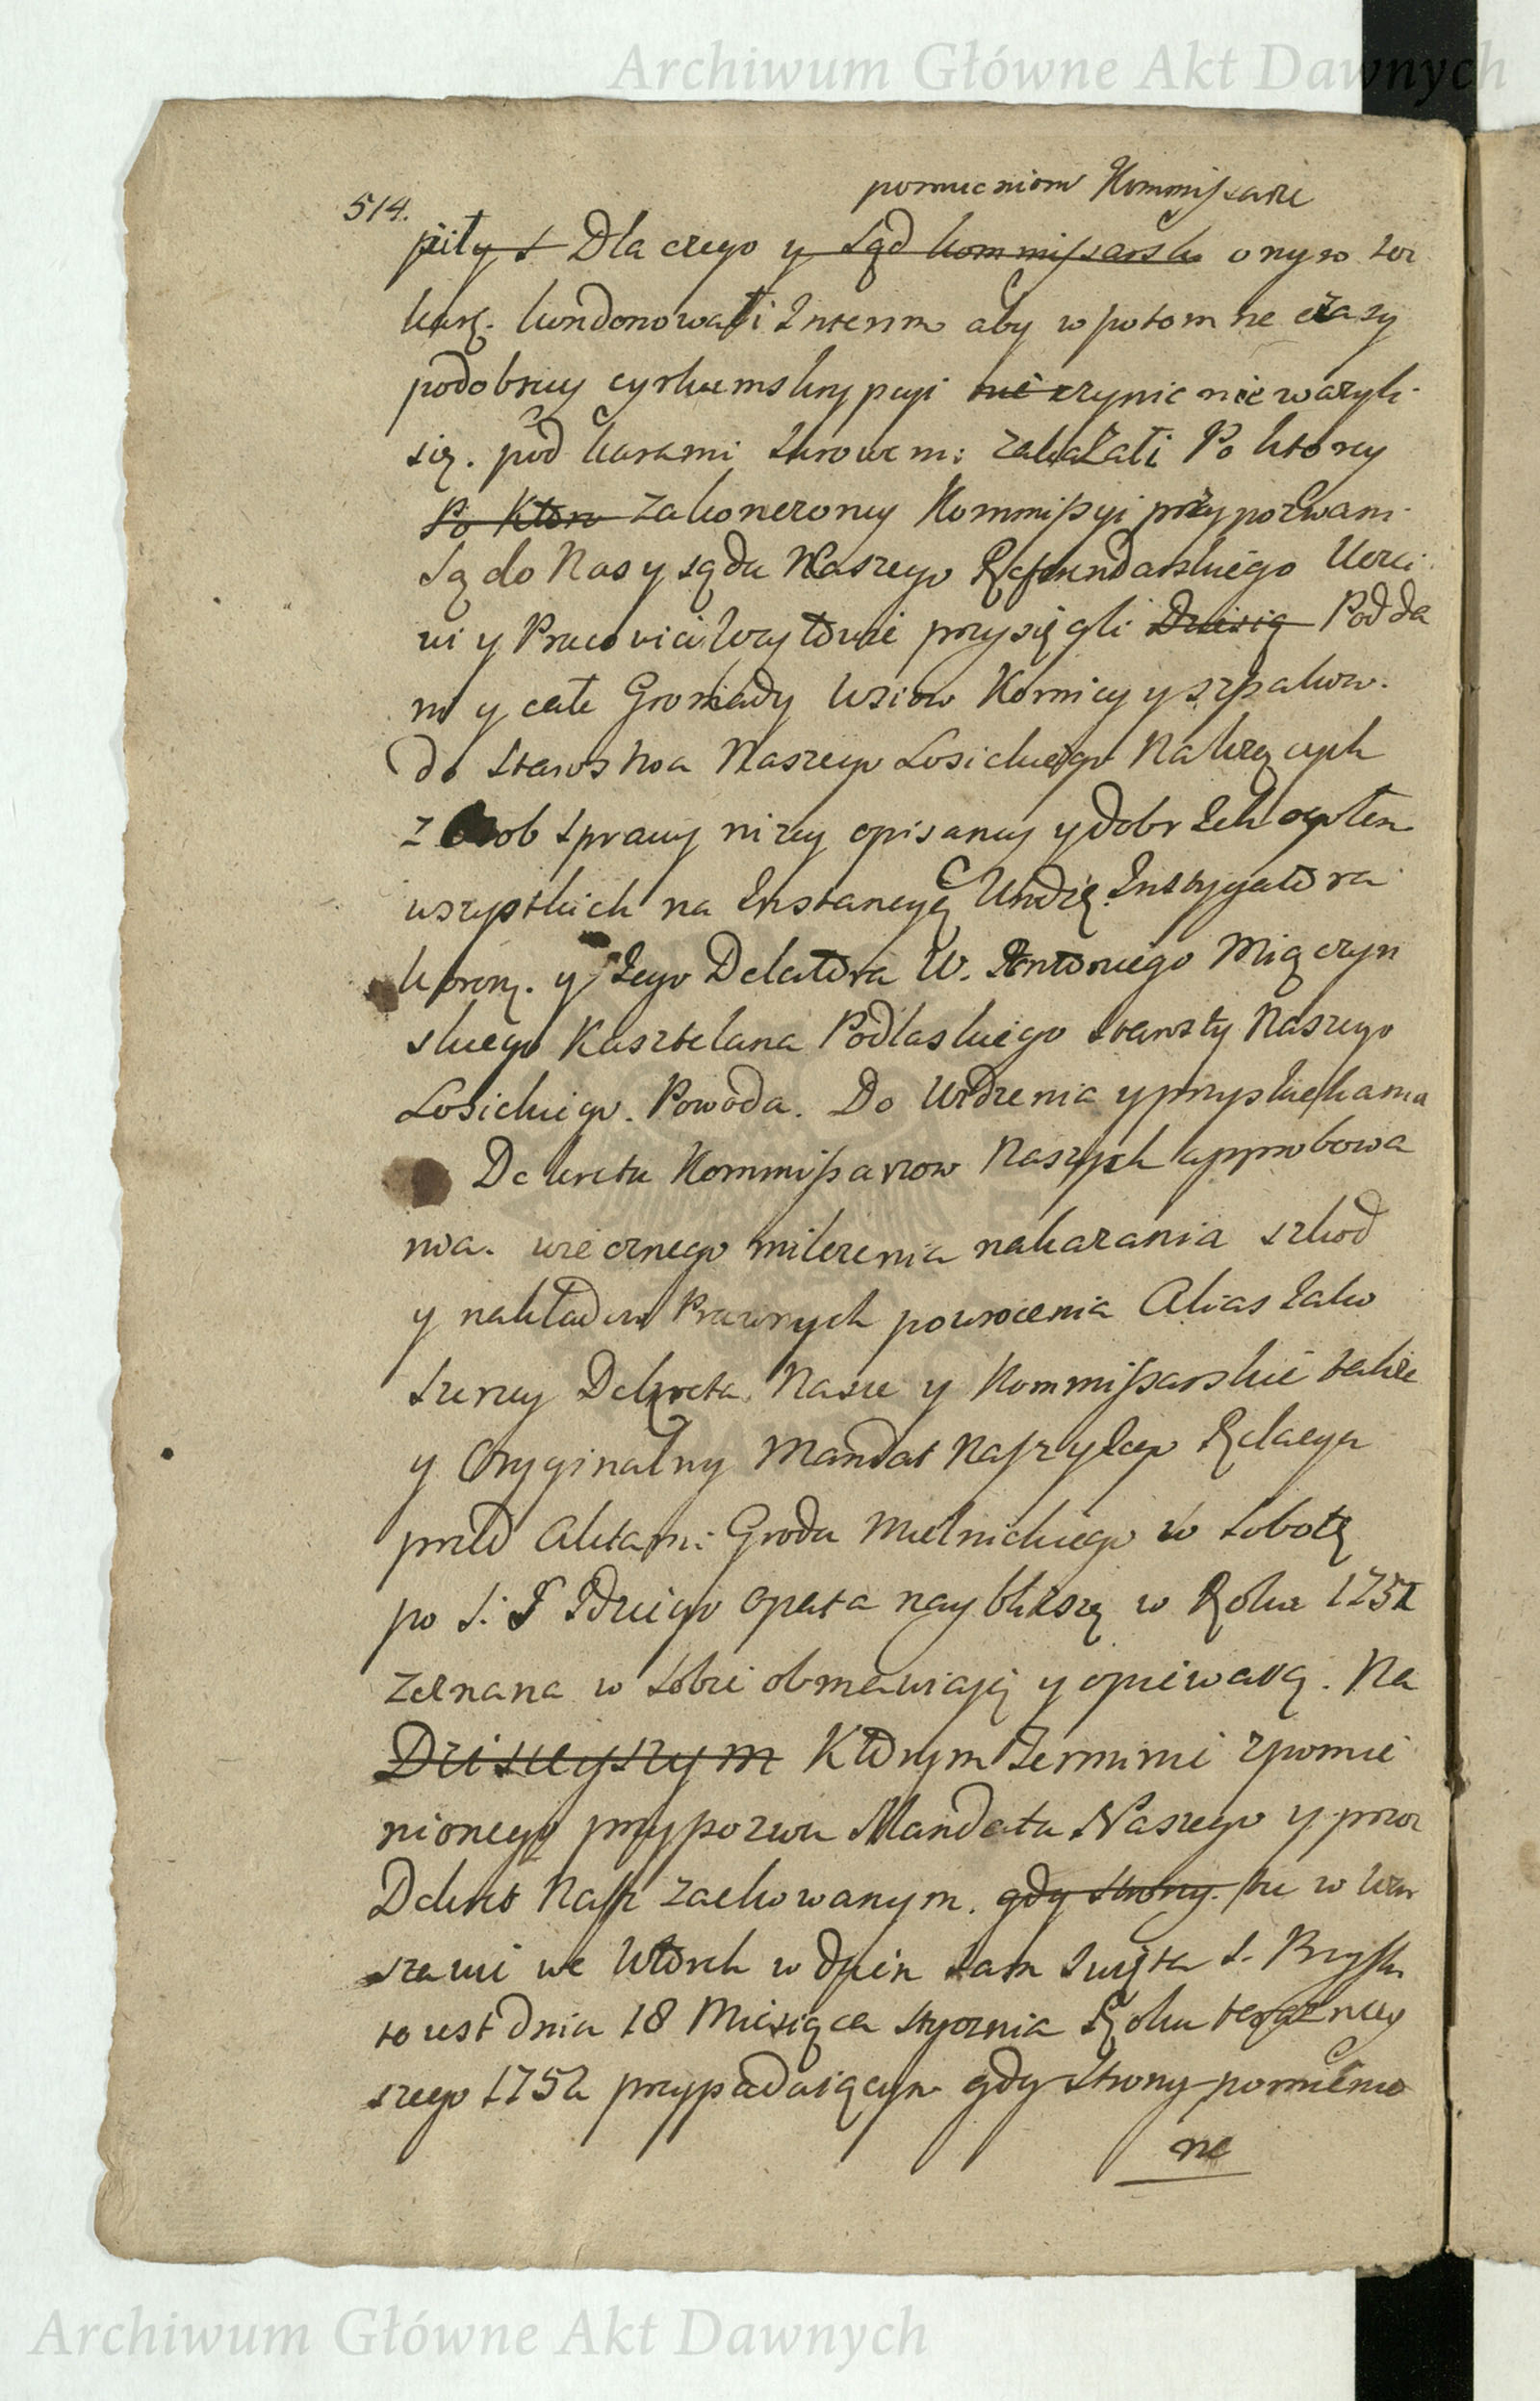 Archiwum Główne Akt Dawnych
514.
pomienieni Kommissarze
piły s Dla czego y Sąd kommissarski onych ter
karę. kondonowali Interim aby w potomne czasy
podobney cyrkumskrypcyi nie czynić nie ważyli
się. pod karami surowemi zakazali Po ktorey
Po Ktorey zakonczoney Kommissyi przypozwani
są do Nas y sądu Naszego Referendarskiego Uczci
wi y Pracowici Woytowie przysięgli Dzisia Podda
ni y całe Gromady Wsiow Kornicy y Szpakow.
do Starostwa Naszego Łosickiego Należących
z Osob sprawy niżey opisaney y dobr Ich ogułem
wszystkich na Instancyą Urodzę. Instygatora
koronę. y Jego Delatora W. Antoniego Miączyn
skiego Kasztelana Podlaskiego Starosty Naszego
Łosickiego. Powoda. Do Widzenia y przysłuchania
Dekretu Kommissarzow Naszych approbowa
nia. wiecznego milczenia nakazania szkod
y nakładow Prawnych powrocenia Alias Jako
szerzey Dekreta Nasze y Kommissarskie także
y Oryginalny Mandat Nasz y Jego Relacya
przed Aktami Grodu Mielnickiego w Sobotę
po S. Idziego Opata naybliższą w Roku 1751
zeznana w sobie obmawiają y opiewaią. Na
Dzisieyszym Ktorym Terminie z pomie
nionego przypozwu Mandatu Naszego y przez
Dekret Nasz zachowanym. gdy strony. tu w War
szawie we Wtorek w dzien sam Swięta S. Pryski
to iest dnia 18 Miesiąca Stycznia Roku terazniey
szego 1752 przypadaiącym gdy Strony pomienio
ne
Archiwum Główne Akt Dawnych